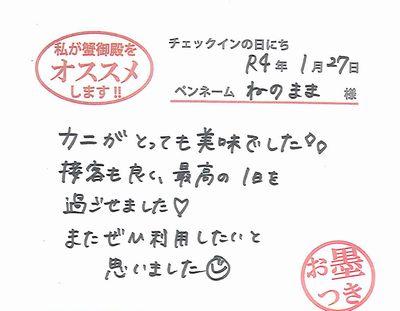 私が蟹御殿を
オススメ
します!!
チェックインの日にち
R4年 1月27日
ペンネーム ねのまま 様
カニがとっても美味でした
接客も良く、最高の1日を
過ごせました♡
またぜひ利用したいと
思いました
お墨
つき